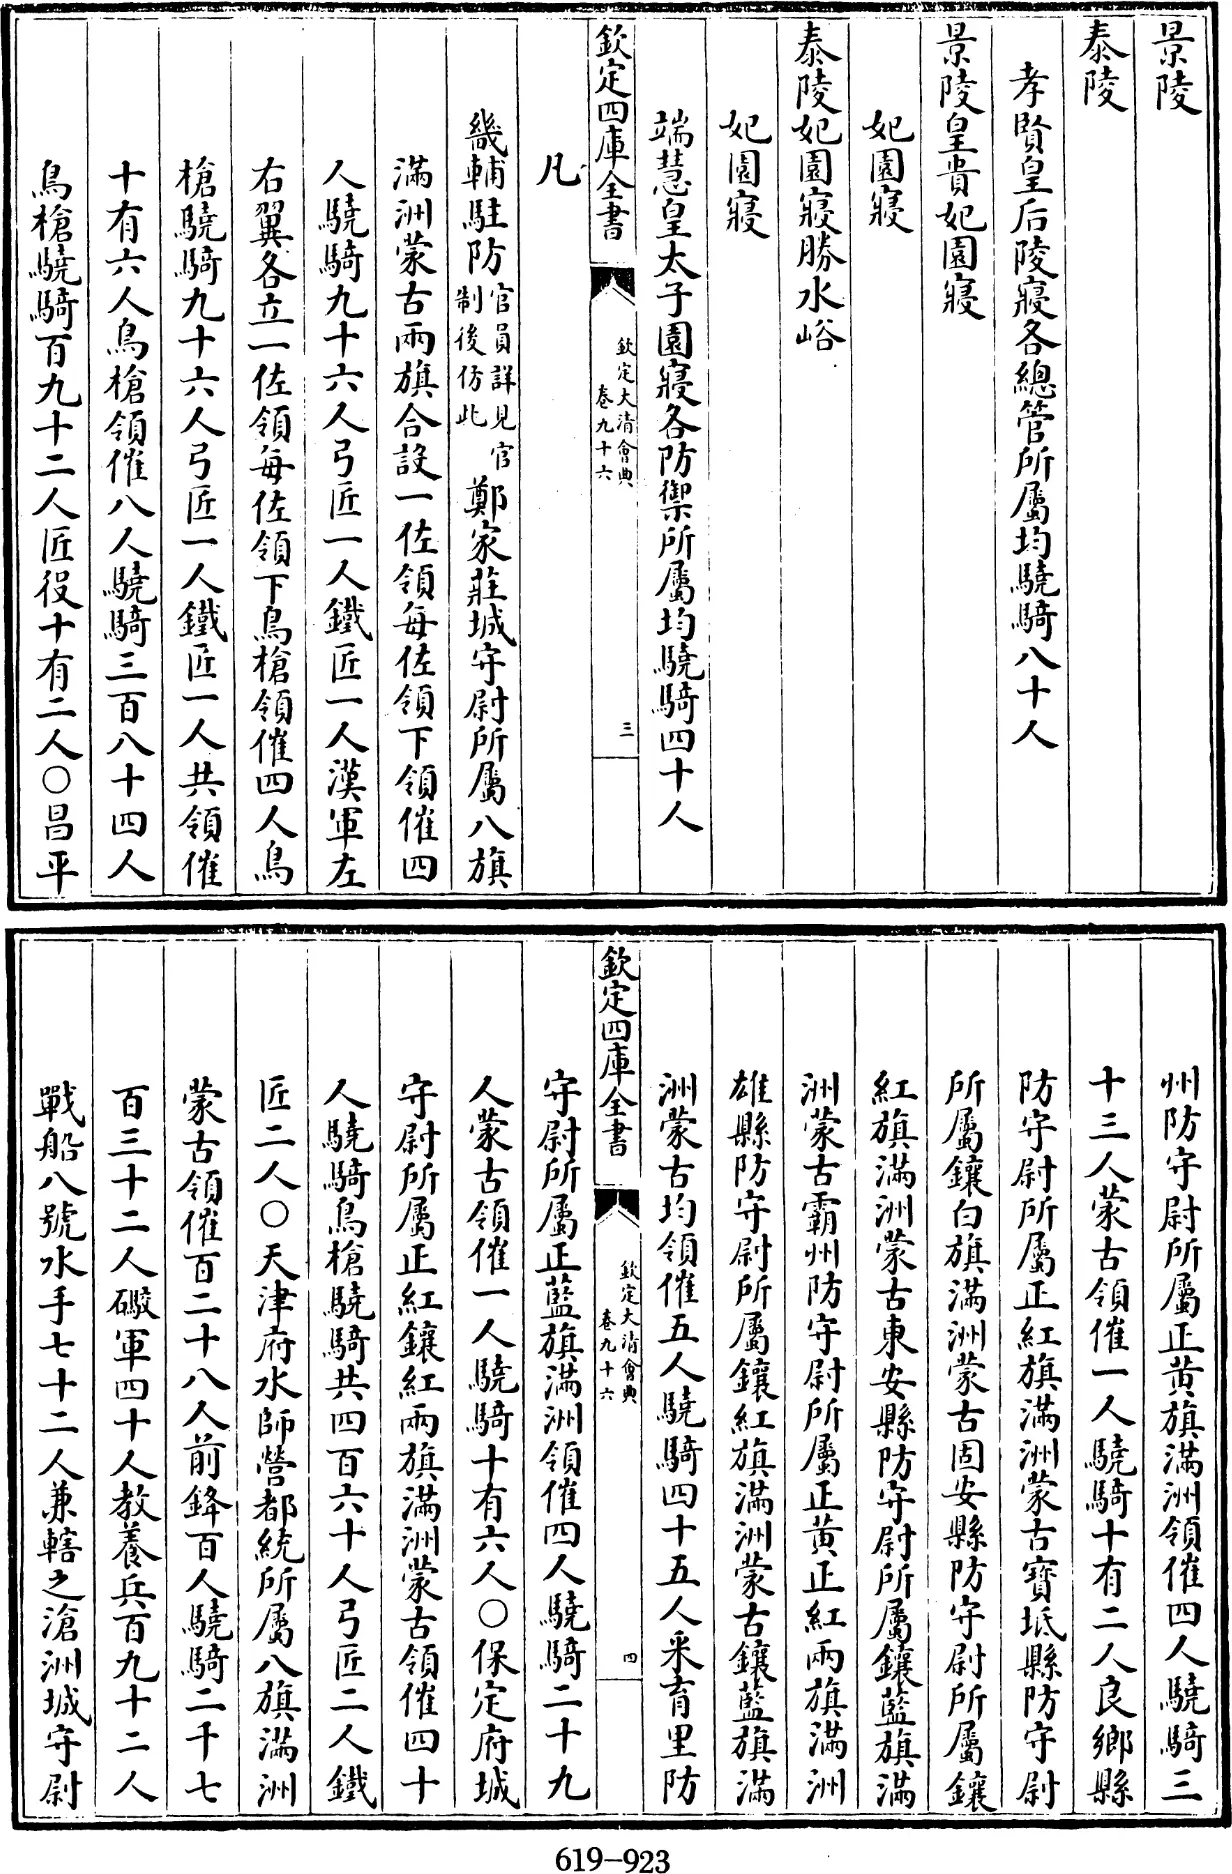 景陵
泰陵
孝賢皇后陵寢各總管所屬均驍騎八十人
景陵皇貴妃園寢
妃園寢
泰陵妃園寢勝水峪
妃園寢
端慧皇太子園寢各防禦所屬均驍騎四十人
欽定四庫全書
欽定大清會典
卷九十六
三
凡
畿輔駐防官員詳見官制後仿此鄭家莊城守尉所屬八旗
滿洲蒙古兩旗合設一佐領每佐領下領催四
人驍騎九十六人弓匠一人鐵匠一人漢軍左
右翼各立一佐領每佐領下鳥槍領催四人鳥
槍驍騎九十六人弓匠一人鐵匠一人共領催
十有六人鳥槍領催八人驍騎三百八十四人
鳥槍驍騎百九十二人匠役十有二人○昌平
州防守尉所屬正黃旗滿洲領催四人驍騎三
十三人蒙古領催一人驍騎十有二人良鄉縣
防守尉所屬正紅旗滿洲蒙古寶坻縣防守尉
所屬鑲白旗滿洲蒙古固安縣防守尉所屬鑲
紅旗滿洲蒙古東安縣防守尉所屬鑲藍旗滿
洲蒙古霸州防守尉所屬正黃正紅兩旗滿洲
雄縣防守尉所屬鑲紅旗滿洲蒙古鑲藍旗滿
洲蒙古均領催五人驍騎四十五人采育里防
欽定四庫全書
欽定大清會典
卷九十六
四
守尉所屬正藍旗滿洲領催四人驍騎二十九
人蒙古領催一人驍騎十有六人○保定府城
守尉所屬正紅鑲紅兩旗滿洲蒙古領催四十
人驍騎鳥槍驍騎共四百六十人弓匠二人鐵
匠二人○天津府水師營都統所屬八旗滿洲
蒙古領催百二十八人前鋒百人驍騎二千七
百三十二人礮軍四十人教養兵百九十二人
戰船八號水手七十二人兼轄之滄洲城守尉
619-923